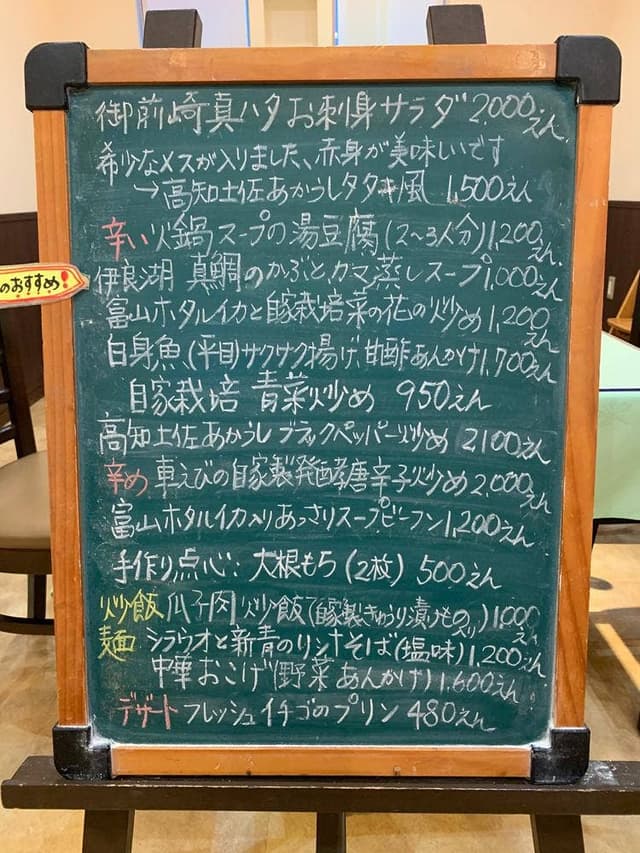 御前崎真ハタお刺身サラダ 2,000えん
希少なメスが入りました、赤身が美味しいです
→高知土佐あかうしタタキ風 1,500えん
辛い火鍋スープの湯豆腐(2~3人分)1,200えん
のおすすめ!
伊良湖 真鯛のかぶとカマ蒸しスープ1,000えん
富山ホタルイカと自家栽培菜の花の炒め1,200えん
白身魚、(平目)サクサク揚げ、甘酢あんかけ1,700えん
自家栽培 青菜炒め 950えん
高知土佐あかうしブラックペッパー炒め 2100えん
辛め 車えびの自家製発酵唐辛子炒め2,000えん
富山ホタルイカ入りあっさりスープビーフン1,200えん
手作り点心:大根もち(2枚)500えん
炒飯 瓜子肉炒飯(自家製きゅうり漬けもの入り)1,000えん
麺 シラウオと新青のり汁そば(塩味)1,200えん
中華おこげ(野菜あんかけ)1,600えん
デザート フレッシュイチゴのプリン 480えん